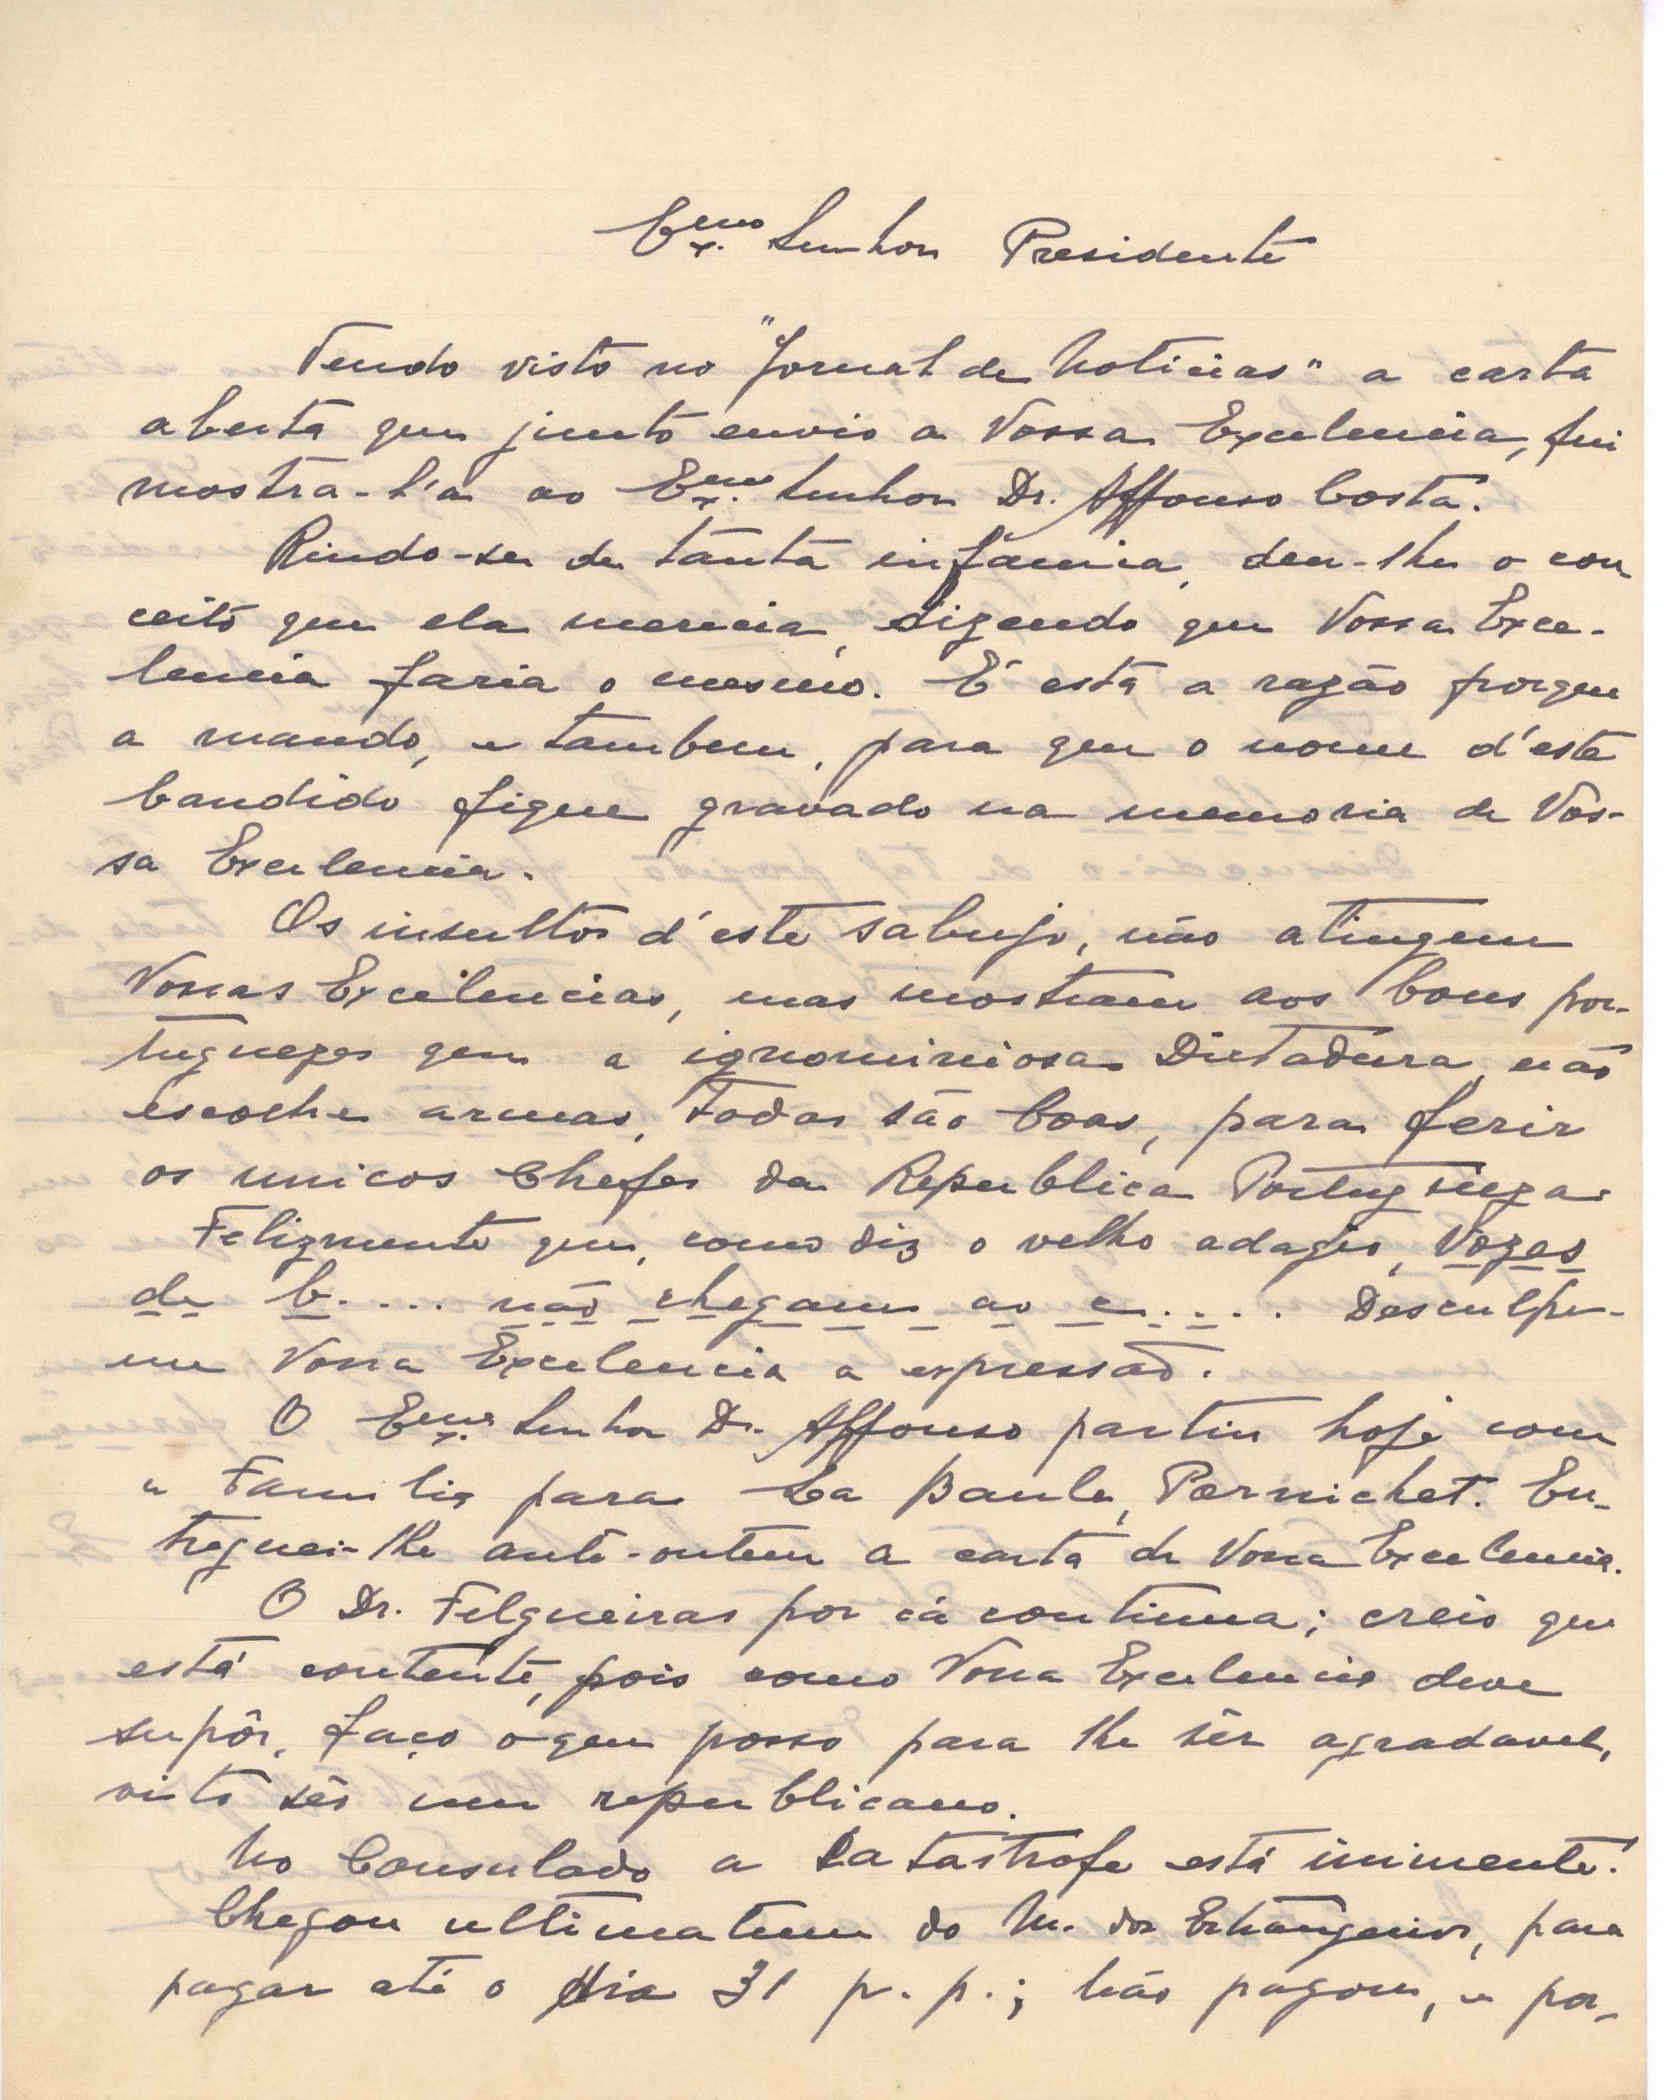 Exmo. Senhor Presidente
Tendo visto no "Jornal de Noticias" a carta
aberta que junto envio a Vossa Excelencia, fui
mostra-l'a ao Exmo. Senhor Dr. Affonso Costa.
Rindo-se de tanta infamia, deu-lhe o con
ceito que ela merecia, dizendo que Vossa Exce-
lencia faria o mesmo. É está a razão porque
a mando, e tambem, para que o nome d'este
bandido fique gravado na memoria de Vos-
sa Excelencia.
Os insultos d'este sabujo, não atingem
Vossas Excelencias, mas mostram aos bons por-
tuguezes que a ignominiosa Dictadura, não
escolhe armas, Todas são boas, para ferir
os unicos Chefes da Republica Portugueza.
Felizmente que, como diz o velho adagio, Vozes
de b.... não chegam ao c..... Desculpe-
me Vossa Excelencia a expressão.
O Exmo. Senhor Dr. Affonso partiu hoje com
a Familia para La Baule, Pornichet. En-
treguei-lhe ante-ontem a carta de Vossa Excelencia.
O Dr. Felgueiras por cá continua; creio que
está contente, pois como Vossa Excelencia deve
supôr, faço o que posso para lhe sêr agradavel,
visto sêr um republicano.
No Consulado a Catastrofe está iminente!
Chegou ultimatum do M. dos Extrangeiros, para
pagar até o dia 31 p. p.; Não pagou, e por-